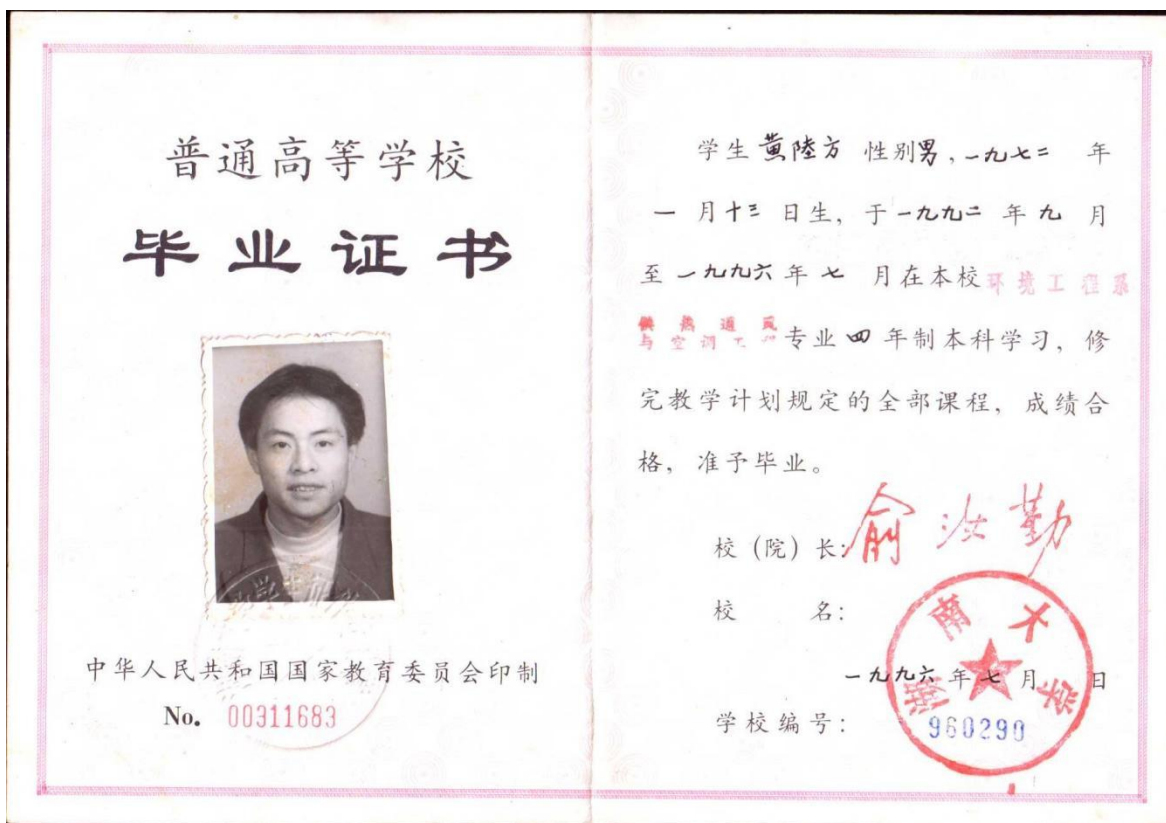 普通高等学校
毕业证书
中华人民共和国国家教育委员会印制
No. 00311683
学生 黄陸方 性别男，一九七二 年
一 月十三 日生，于一九九二 年 九 月
至 一九九六 年 七 月在本校 环境工程系
供热通风
与空调工程 专业 四 年制本科学习，修
完教学计划规定的全部课程，成绩合
格，准予毕业。
校（院）长：俞汝勤
校 名：
湖南大学
一九九六 年 七 月 日
学校编号：960290